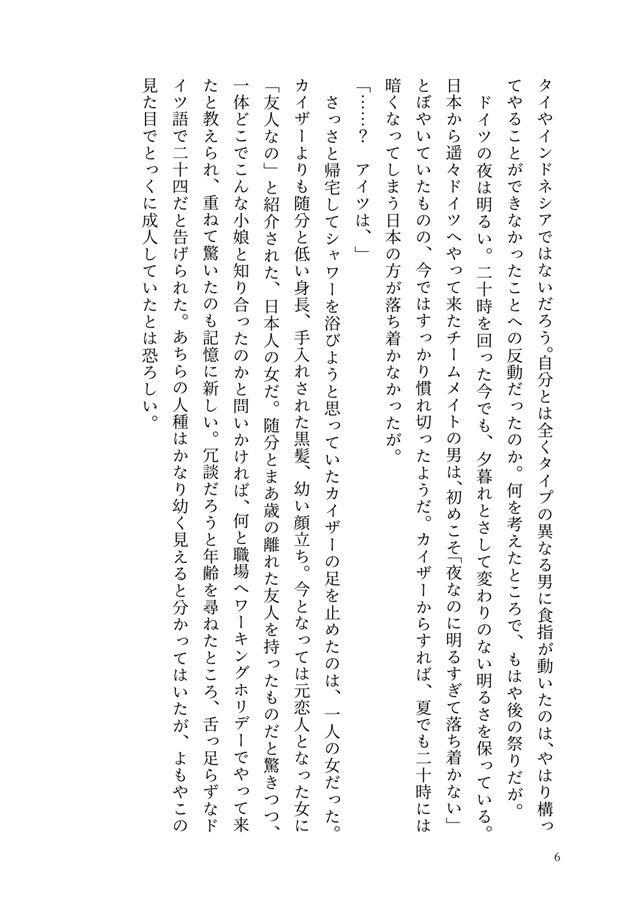 タイやインドネシアではないだろう。自分とは全くタイプの異なる男に食指が動いたのは、やはり構っ
てやることができなかったことへの反動だったのか。何を考えたところで、もはや後の祭りだが。
ドイツの夜は明るい。二十時を回った今でも、夕暮れとさして変わりのない明るさを保っている。
日本から遥々ドイツへやって来たチームメイトの男は、初めこそ「夜なのに明るすぎて落ち着かない」
とぼやいていたものの、今ではすっかり慣れ切ったようだ。カイザーからすれば、夏でも二十時には
暗くなってしまう日本の方が落ち着かなかったが。
「……？　アイツは、」
さっさと帰宅してシャワーを浴びようと思っていたカイザーの足を止めたのは、一人の女だった。
カイザーよりも随分と低い身長、手入れされた黒髪、幼い顔立ち。今となっては元恋人となった女に
「友人なの」と紹介された、日本人の女だ。随分とまあ歳の離れた友人を持ったものだと驚きつつ、
一体どこでこんな小娘と知り合ったのかと問いかければ、何と職場へワーキングホリデーでやって来
たと教えられ、重ねて驚いたのも記憶に新しい。冗談だろうと年齢を尋ねたところ、舌っ足らずなド
イツ語で二十四だと告げられた。あちらの人種はかなり幼く見えると分かってはいたが、よもやこの
見た目でとっくに成人していたとは恐ろしい。
6